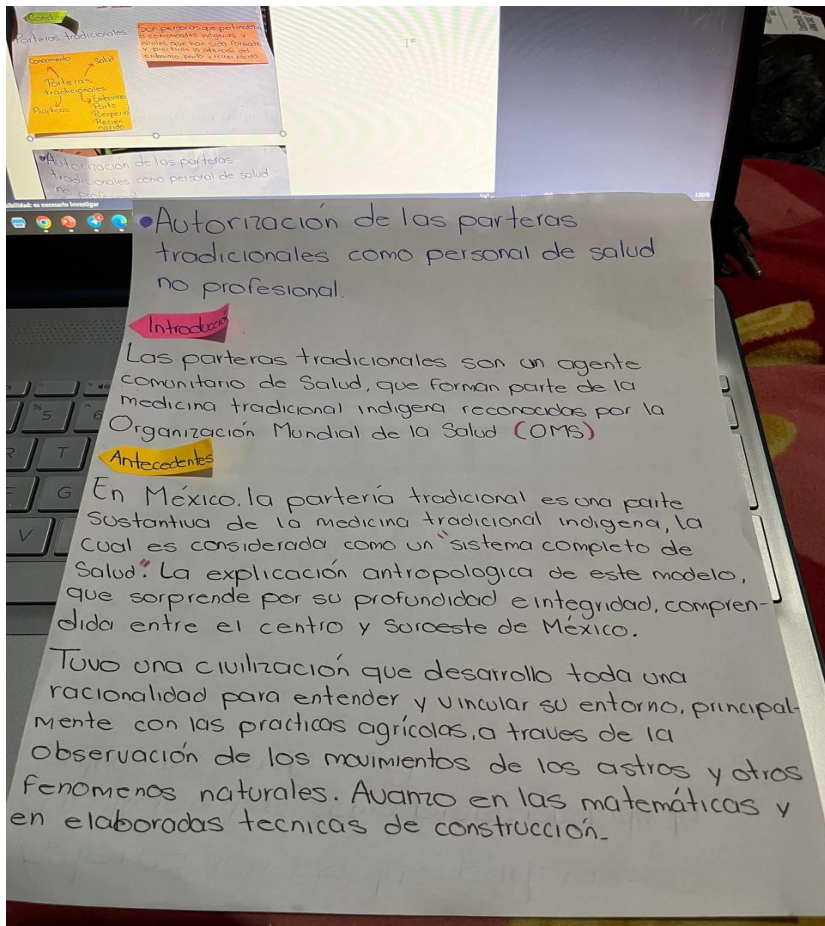 Parteras tradicionales
Conocimiento
Salud
Parteras
tradicionales
Practicas
Embarazo
Parto
Recien
nacido
Son personas que pertenecen
a comunidades indigenas y
rurales que han sido formadas
y practican la atención del
embarazo, parto y recien nacido
•Autorización de las parteras
tradicionales como personal de salud
no
es necesario investigar
100%
•Autorización de las parteras
tradicionales como personal de salud
no profesional.
Introducción
Las parteras tradicionales son un agente
comunitario de Salud, que forman parte de la
medicina tradicional indigena reconocidas por la
Organización Mundial de la Salud (OMS)
Antecedentes
En México, la partería tradicional es una parte
sustantiva de la medicina tradicional indigena, la
cual es considerada como un "sistema completo de
Salud". La explicación antropologica de este modelo,
que sorprende por su profundidad e integridad, compren-
dida entre el centro y suroeste de México.
Tuvo una civilización que desarrollo toda una
racionalidad para entender y vincular su entorno, principal-
mente con las practicas agrícolas, a traves de la
observación de los movimientos de los astros y otros
fenomenos naturales. Avanzo en las matemáticas y
en elaboradas tecnicas de construcción.
5
6
T
G
V